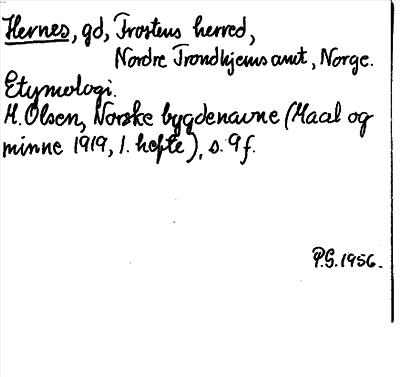 Hernes, gd, Frostens herred,
Nordre Trondhjems amt, Norge.
Etymologi.
M. Olsen, Norske bygdenavne (Maal og
minne 1919, 1. hefte), s. 9 f.
P.G. 1956.